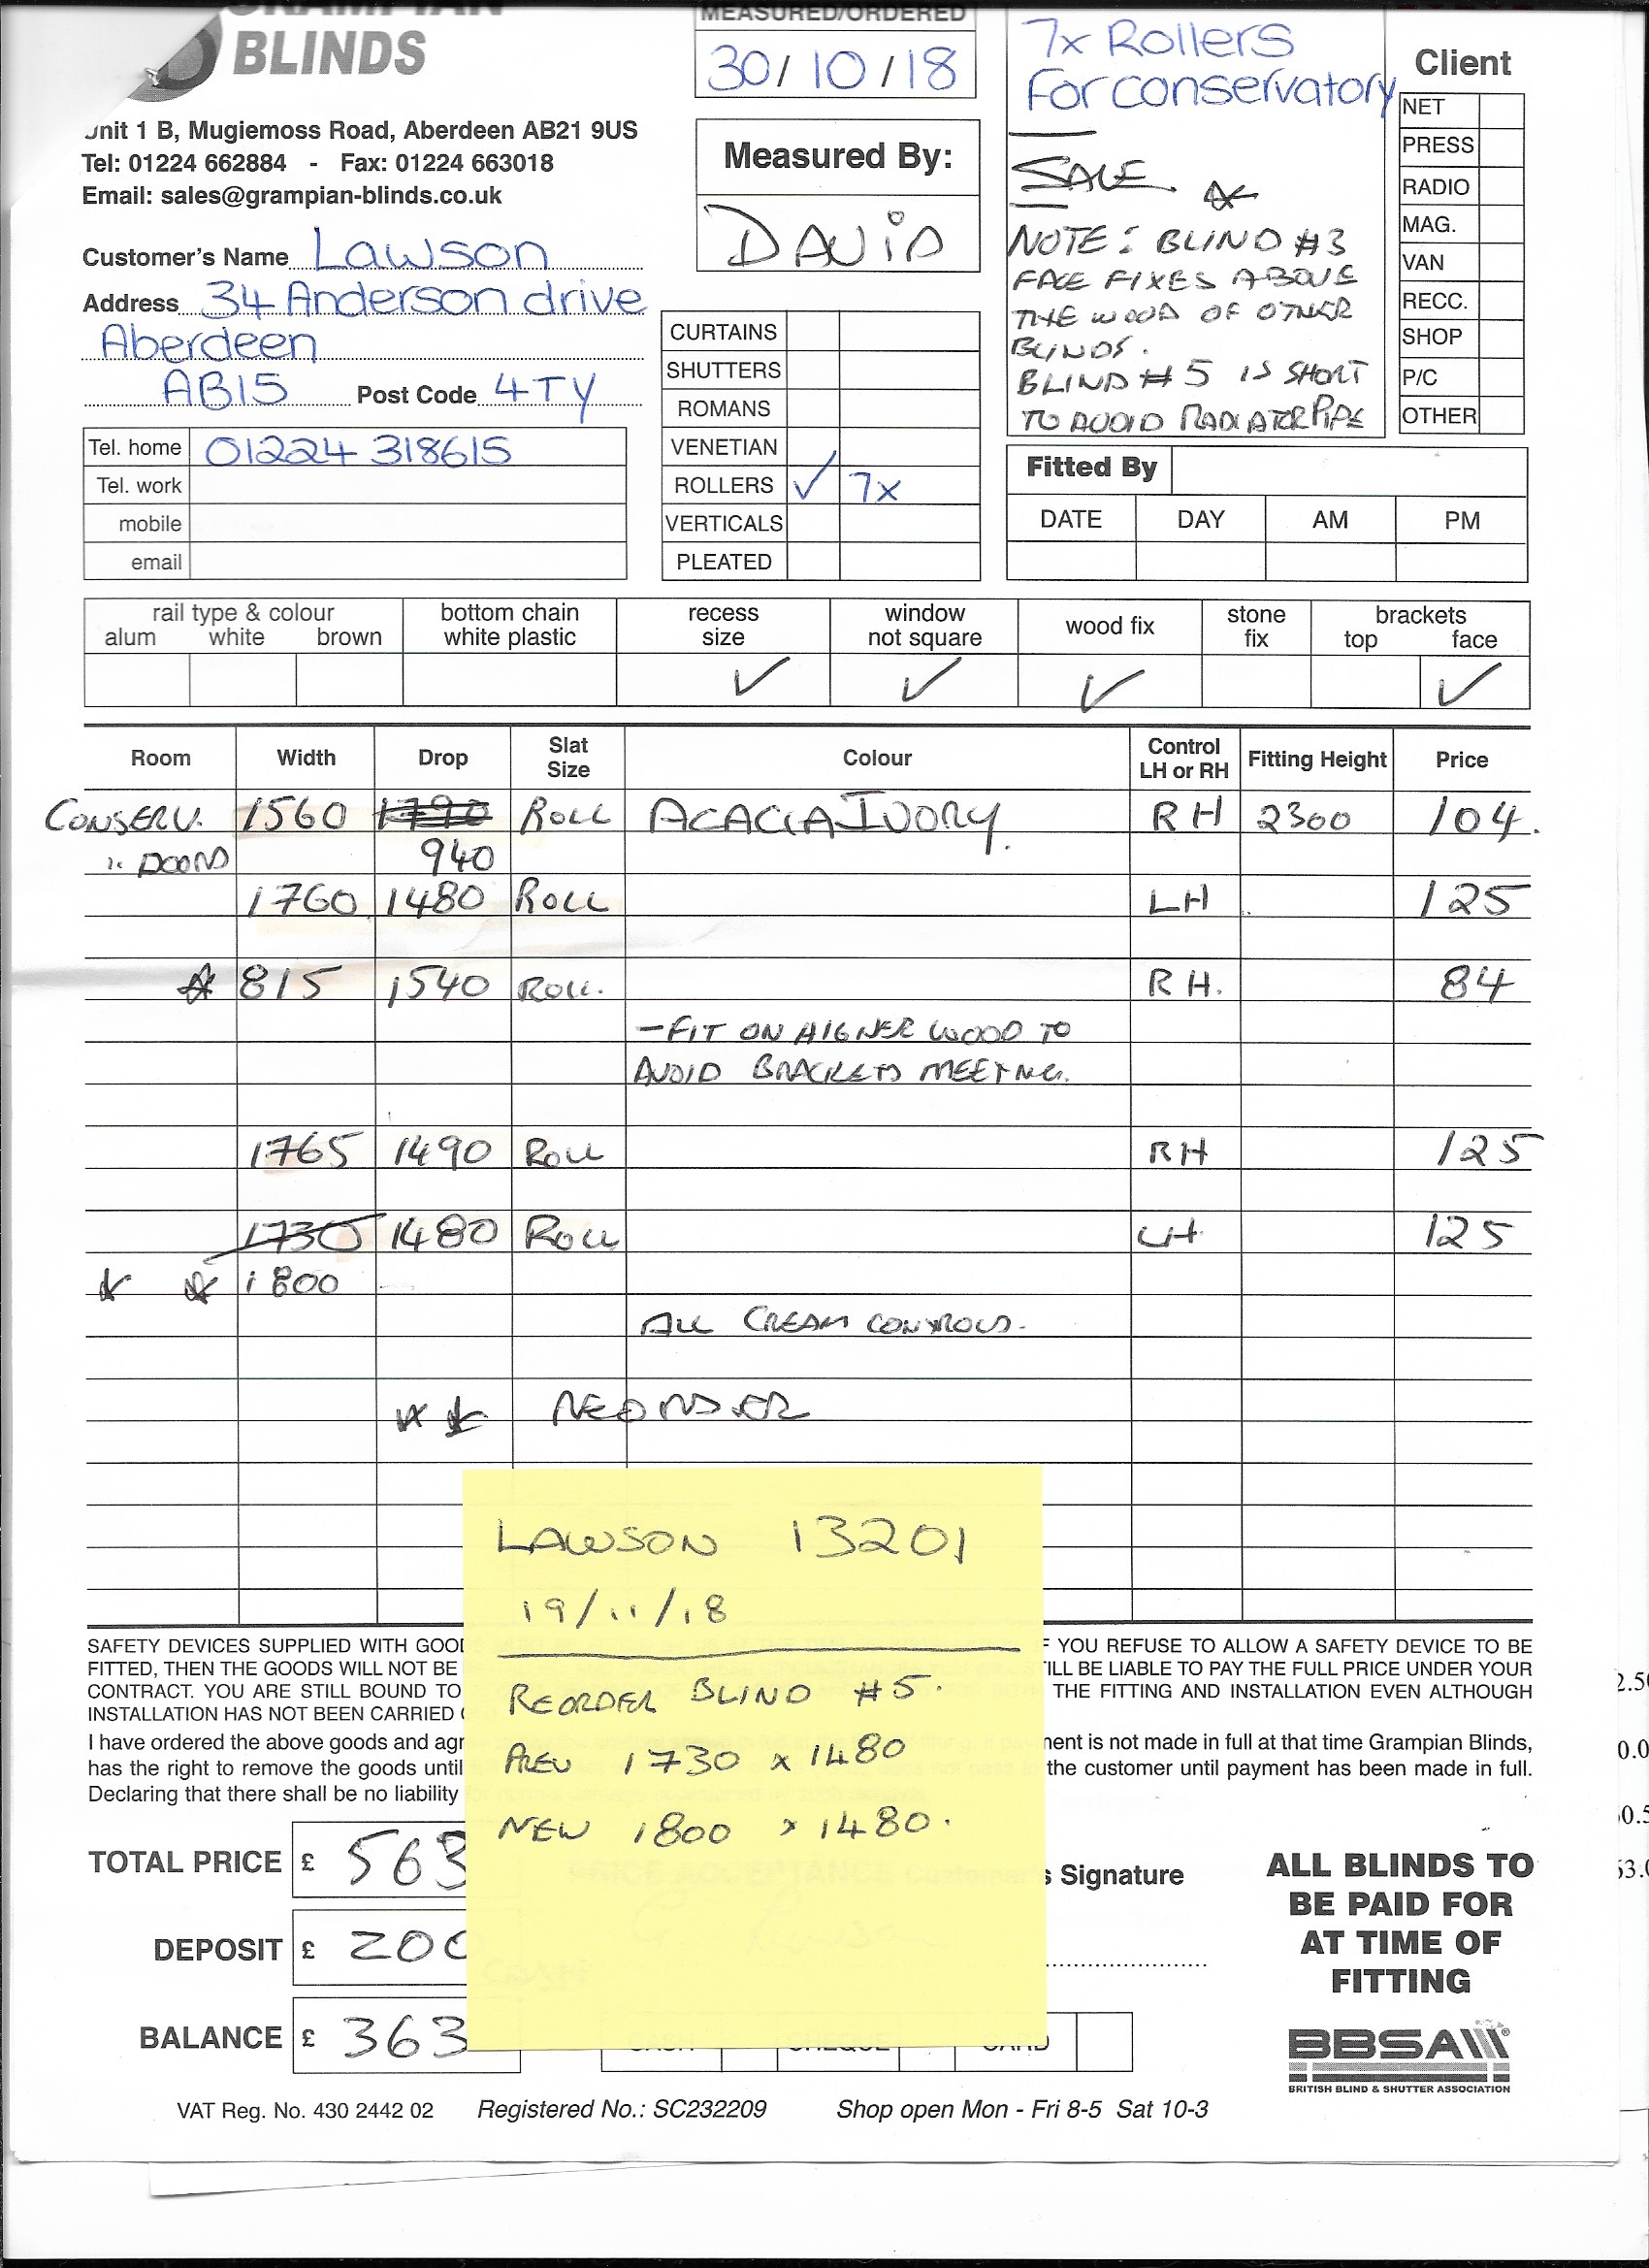 GRAMPIAN
BLINDS
Unit 1 B, Mugiemoss Road, Aberdeen AB21 9US
Tel: 01224 662884 - Fax: 01224 663018
Email: sales@grampian-blinds.co.uk
Customer's Name Lawson
Address 34 Anderson drive
Aberdeen
AB15 Post Code 4TY
Tel. home 01224 318615
Tel. work
mobile
email
MEASURED/ORDERED
30/10/18
Measured By:
DAVID
CURTAINS
SHUTTERS
ROMANS
VENETIAN
ROLLERS ✓ 7x
VERTICALS
PLEATED
7x Rollers
For conservatory
SALE
NOTE: BLIND #3
FACE FIXES ABOVE
THE WOOD OF OTHER
BLINDS.
BLIND #5 IS SHORT
TO AVOID RADIATOR PIPE
Client
NET
PRESS
RADIO
MAG.
VAN
RECC.
SHOP
P/C
OTHER
Fitted By
DATE DAY AM PM
rail type & colour bottom chain recess window wood fix stone brackets
alum white brown white plastic size not square fix top face
✓ ✓ ✓ ✓
Room Width Drop Slat Size Colour Control LH or RH Fitting Height Price
CONSERV. 1560 1790 ROLL ACACIA IVORY. RH 2300 104.
DOORS 940
1760 1480 ROLL LH 125
815 1540 ROLL. RH. 84
- FIT ON HIGHER WOOD TO
AVOID BRACKETS MEETING.
1765 1490 ROLL RH 125
1730 1480 ROLL LH 125
1800
ALL CREAM CONTROLS.
REORDER
LAWSON 13201
19/11/18
REORDER BLIND #5.
PREV 1730 x 1480
NEW 1800 x 1480.
SAFETY DEVICES SUPPLIED WITH GOO F YOU REFUSE TO ALLOW A SAFETY DEVICE TO BE
FITTED, THEN THE GOODS WILL NOT BE ILL BE LIABLE TO PAY THE FULL PRICE UNDER YOUR
CONTRACT. YOU ARE STILL BOUND TO THE FITTING AND INSTALLATION EVEN ALTHOUGH
INSTALLATION HAS NOT BEEN CARRIED
I have ordered the above goods and agr ment is not made in full at that time Grampian Blinds,
has the right to remove the goods until the customer until payment has been made in full.
Declaring that there shall be no liability
TOTAL PRICE £ 563
DEPOSIT £ 200
BALANCE £ 363
PRICE ACCEPTANCE Customer's Signature
CASH
CASH CHEQUE CARD
ALL BLINDS TO
BE PAID FOR
AT TIME OF
FITTING
BBSA
BRITISH BLIND & SHUTTER ASSOCIATION
VAT Reg. No. 430 2442 02 Registered No.: SC232209 Shop open Mon - Fri 8-5 Sat 10-3